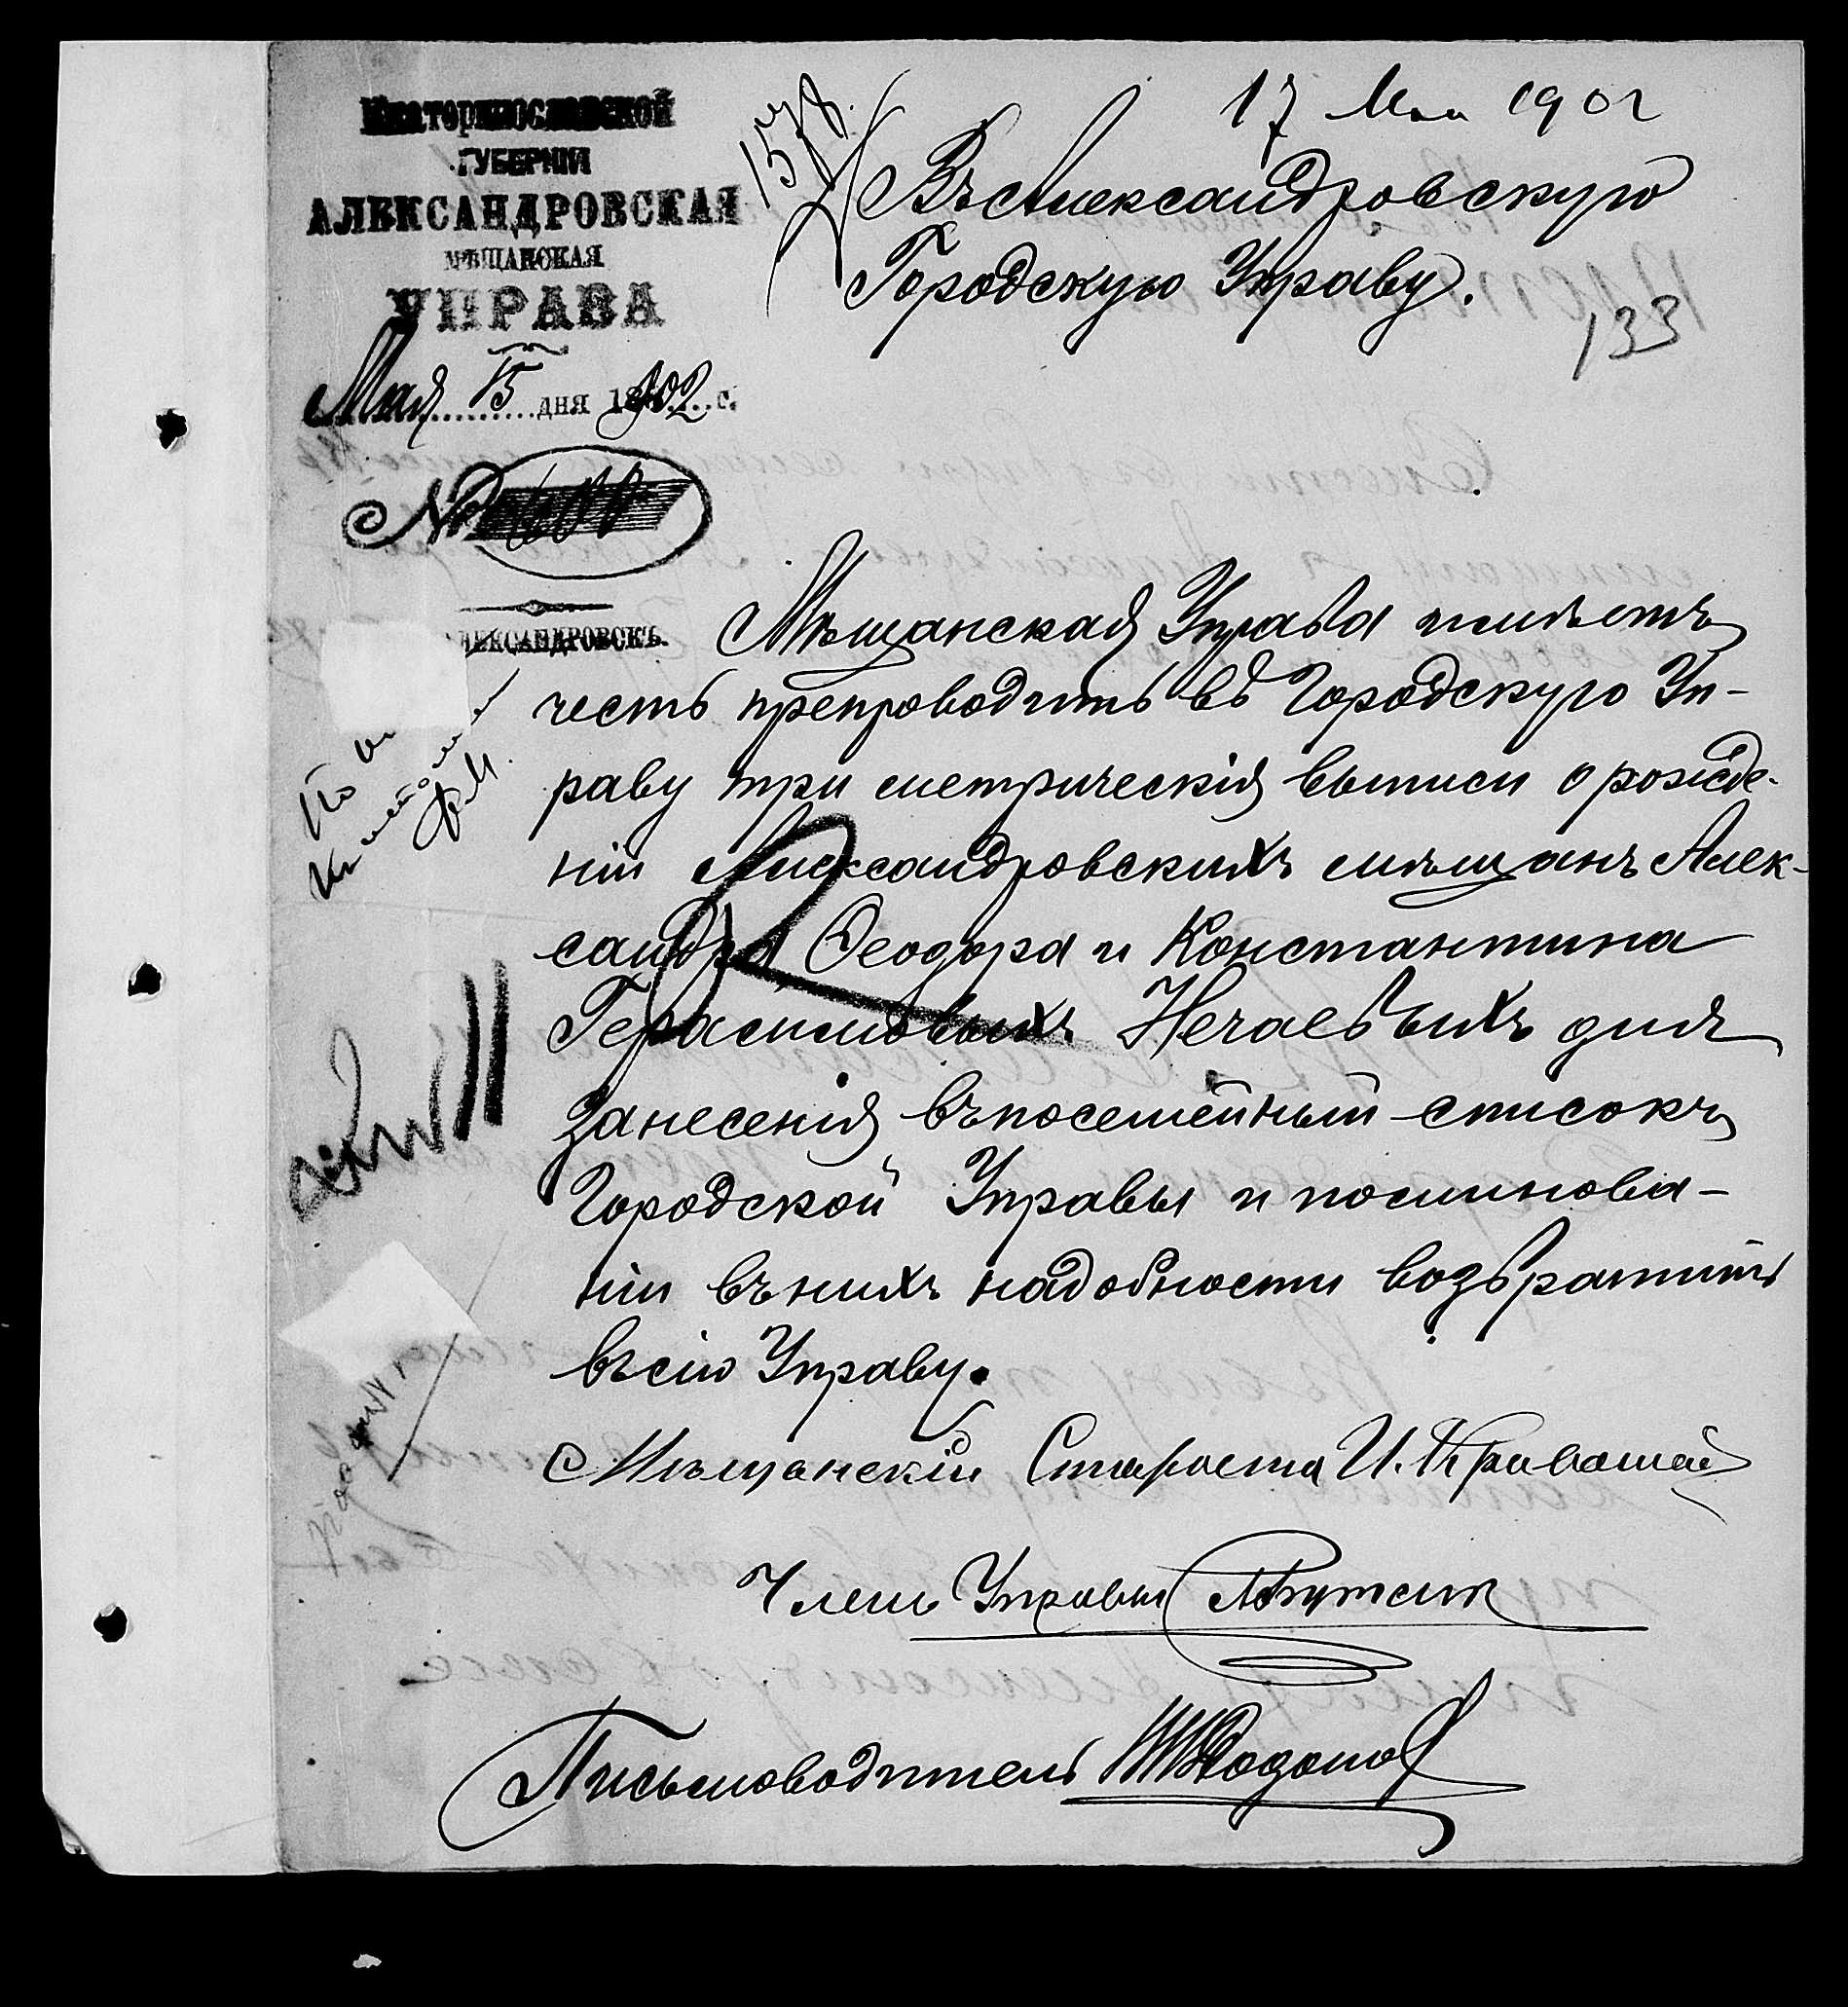 Екатеринославской
ГУБЕРНІИ
АЛЕКСАНДРОВСКАЯ
МѢЩАНСКАЯ
УПРАВА
Мая 15 дня 1902 г.
№
АЛЕКСАНДРОВСКЪ.
1578.
17 Мая 1902
Въ Александровскую
Городскую Управу.
133
Мѣщанская Управа имѣетъ
честь препроводить въ Городскую Уп-
раву три метрическія выписи о рожде-
ніи Александровскихъ мѣщанъ Алек-
сандра Ѳеодора и Константина
Герасимовыхъ Нечаевыхъ для
занесенія въ посемейный списокъ
Городской Управы и по минова-
ніи въ нихъ надобности возвратить
въ сію Управу.
Мѣщанскій Староста И.
Членъ Управы
Письмоводитель